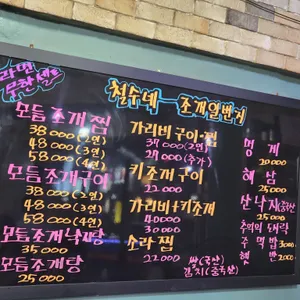 라면
무한셀프
철수네 조개일번지
모듬조개찜
38000(2인)
48000(3인)
58000(4인)
모듬조개구이
38000(2인)
48000(3인)
58000(4인)
모듬조개낙지탕
35000
모듬조개탕
25000
가리비구이·찜
37000(2인)
27000(추가)
키조개구이
22.000
가리비+키조개
40000
50000
소라찜
22.000
멍게
20000
해삼
25000
산낙지(중국산)
25000
추억의 도시락
주먹밥 3000
햇반 2000
쌀(국산)
김치(중국산)